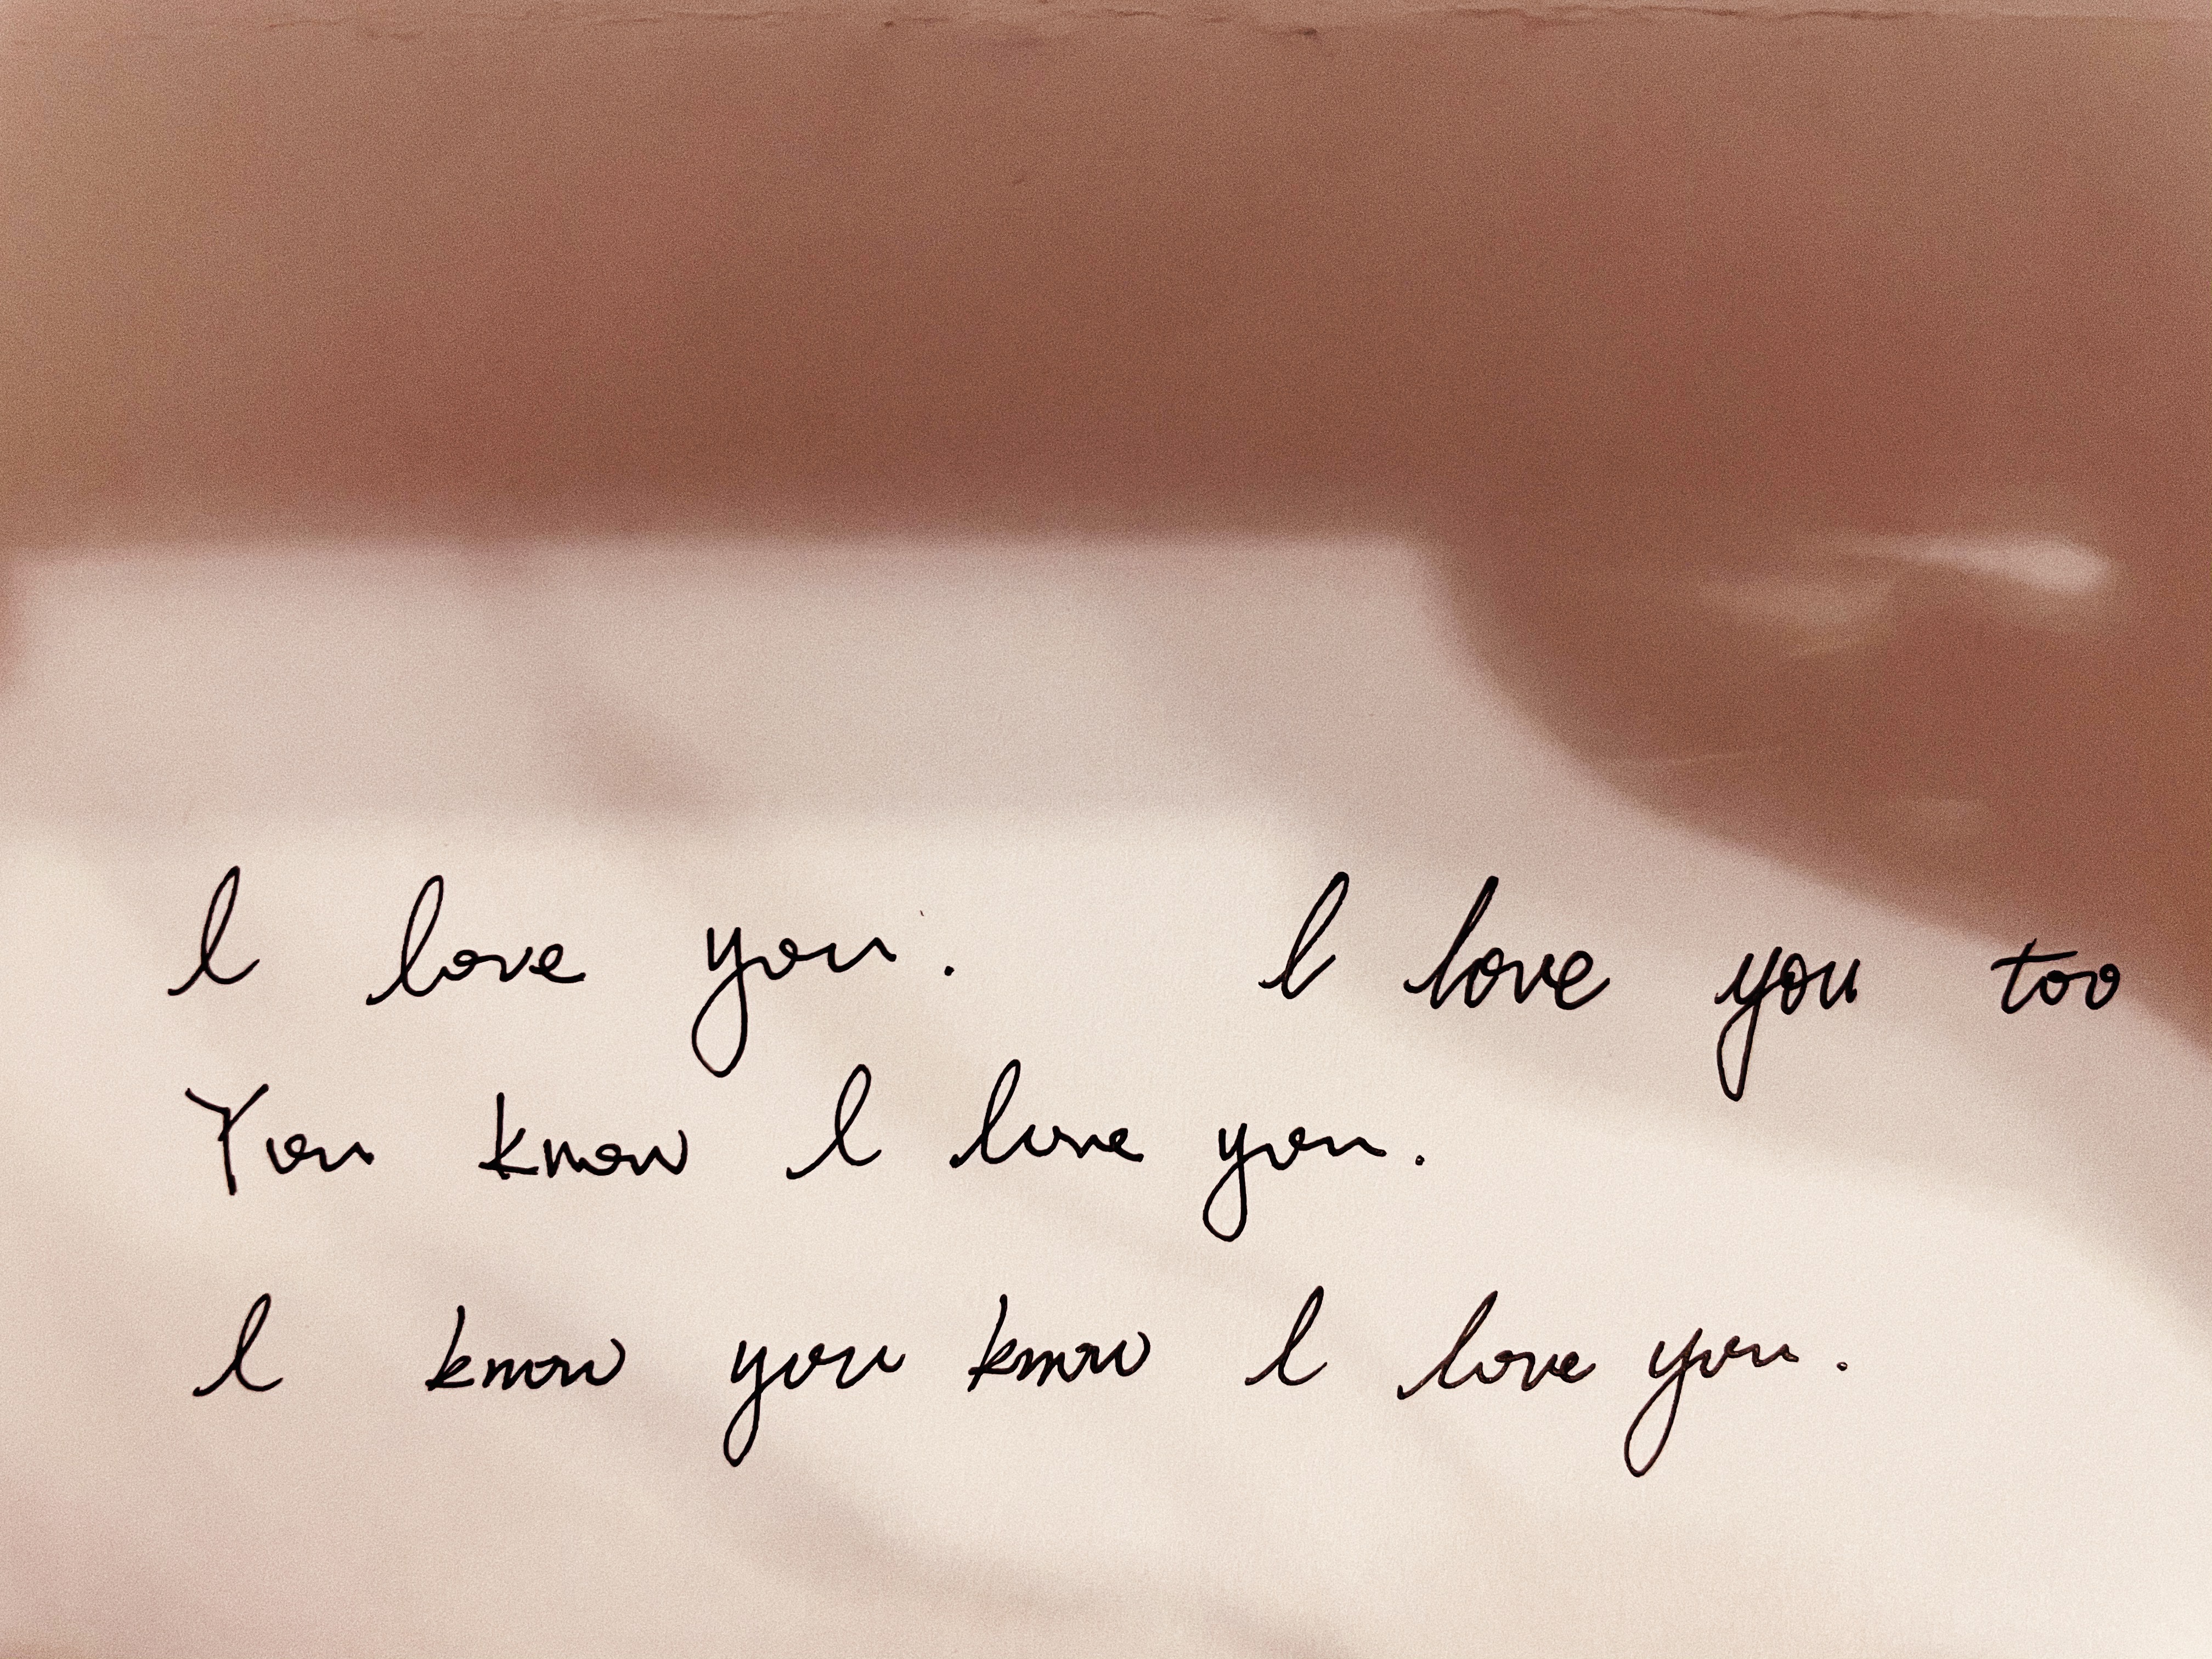 I love you. I love you too
You know I love you.
I know you know I love you.